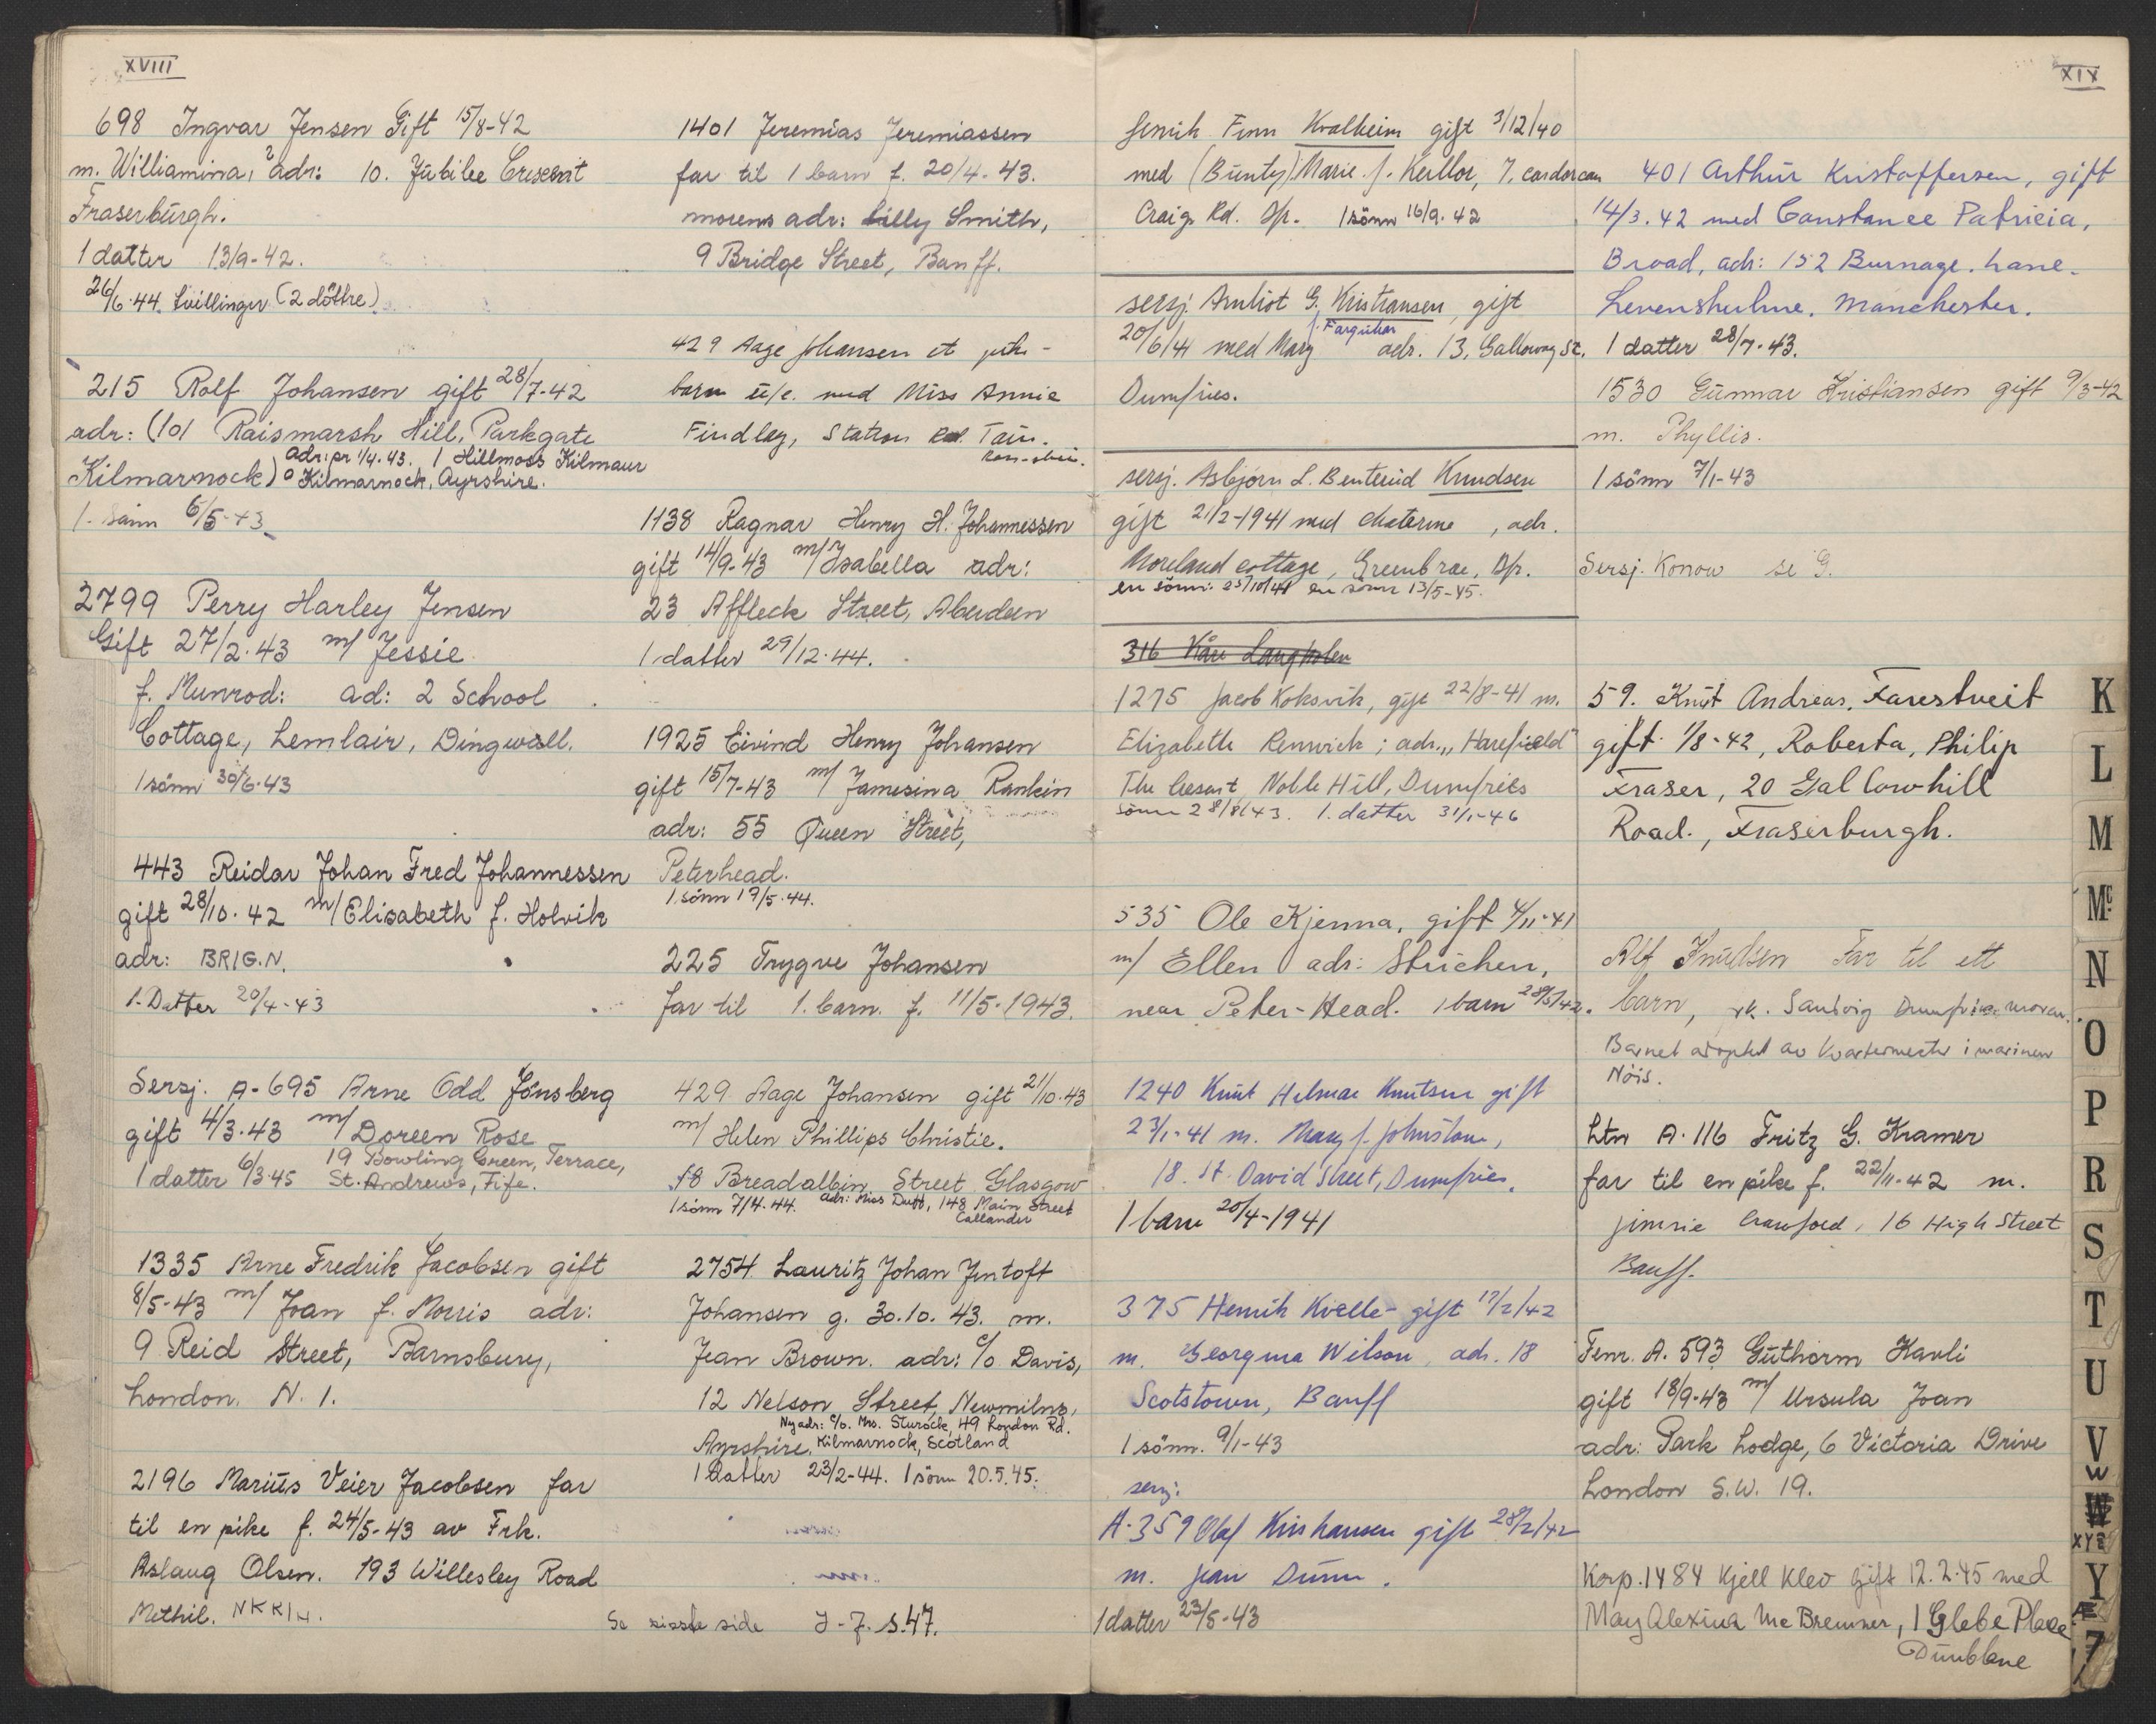 XVIII
698 Ingvar Jensen Gift 15/8-42
m. Williamina, adr: 10. Jubilee Crescent
Fraserburgh.
1 datter 13/9-42.
26/6.44. tvillinger (2 döttre)
215 Rolf Johansen gift 28/7-42
adr: (101 Raismarsh Hill, Parkgate
adr: pr 1/4.43. 1 Hillmoss Kilmaur
Kilmarnock) Kilmarnock, Ayrshire.
1. sönn 6/5-43
2799 Perry Harley Jensen
Gift 27/2.43 m/ Jessie
f. Munrod: ad: 2 School
Cottage, Lemlair, Dingwall.
1 sönn 30/6.43
443 Reidar Johan Fred Johannessen
gift 28/10.42 m/ Elisabeth f. Holvik
adr: BRIG.N.
1. Datter 20/4-43
Sersj. A-695 Arne Odd Jönsberg
gift 4/3.43 m/ Doreen Rose
19 Bowling Green, Terrace,
1 datter 6/3.45 St. Andrews, Fife.
1335 Arne Fredrik Jacobsen gift
8/5-43 m/ Joan f. Morris adr:
9 Reid Street, Barnsbury,
London. N. 1.
2196 Marius Veier Jacobsen far
til en pike f. 24/5-43 av Frk.
Aslaug Olsen. 193 Willesley Road
Methil. NKKIH.
1401 Jeremias Jeremiassen
far til 1 barn f. 20/4-43.
morens adr: Lilly Smith,
9 Bridge Street, Banff.
429 Aage Johansen et
barn u/e. med Miss Annie
Findlay, Station Rd. Tain.
Ross-shire.
1138 Ragnar Henry H. Johannessen
gift 14/9-43 m/ Isabella adr:
23 Affleck Street, Aberdeen
1 datter 29/12.44.
1925 Eivind Henry Johansen
gift 15/7-43 m/ Jamesina Rankin
adr: 55 Queen Street,
Peterhead.
1 sönn 17/5.44.
225 Trygve Johansen
far til 1. barn. f. 11/5-1943.
429 Aage Johansen gift 21/10.43
m/ Helen Phillips Christie.
18 Breadalbin Street Glasgow
1 sönn 7/4.44. adr: Miss Duff, 148 Main Street
Callander
2754 Lauritz Johan Jentoft
Johansen g. 30.10.43. m.
Jean Brown. adr: c/o Davis,
12 Nelson Street, Newmilns,
Ny adr: c/o. Mrs. Sturock, 49 London Rd.
Ayrshire. Kilmarnock, Scotland
1 datter 23/2-44. 1 sönn 20.5.45.
Se siste side J-J. s.47.
fenrik Finn Kvalheim gift 3/12/40
med (Bunty) Marie f. Kerllor, 7.
Craig. Rd. Dfr. 1 sönn 16/9.42
sersj. Arnliot G. Kristiansen, gift
f. Farquhar
20/6/41 med Mary adr. 13, Galloway St.
Dumfries.
sersj. Asbjørn L. Benterud Knudsen
gift 21/2-1941 med Chaterine, adr.
Moreland cottage, Greenbrae, Dfr.
en sönn: 25/10/41 en sönn 13/5-45.
316 Kåre Langholen
1275 Jacob Koksvik, gift 22/8-41 m.
Elizabeth Renwick; adr. „Harefield"
The Cresent, Noble Hill, Dumfries
sönn 28/8/43. 1. datter 31/1-46
535 Ole Kjenna, gift 4/11-41
m/ Ellen adr: Strichen,
near Peter-Head. 1 barn 28/5/42.
1240 Knut Helmar Knutsen gift
23/1-41 m. Mary f. Johnstone,
18. St. David Street, Dumfries.
1 barn 20/4-1941
375 Henrik Kvelle gift 17/2/42
m. Georgina Wilson, adr. 18
Scotstown, Banff
1 sönn. 9/1-43
sersj.
A-359 Olaf Kristiansen gift 28/2/42
m. Jean Dunn.
1 datter 23/5-43
XIX
401 Arthur Kristoffersen, gift
14/3.42 med Constance Patricia,
Broad, adr: 152 Burnage. Lane.
Levenshulme. Manchester.
1 datter 28/7-43.
1530 Gunnar Kristiansen gift 9/3-42
m. Phyllis.
1 sönn 7/1-43
Sersj. Konow se G.
59. Knut Andreas, Farestveit
gift 1/8-42, Roberta, Philip
Fraser, 20 Gallowhill
Road., Fraserburgh.
Alf Knudsen Far til ett
barn, rk. Sandvig Dumfries
Barnet adoptert av Kvartermester i marinen
Nöis.
Ltn A.116 Fritz G. Kramer
far til en pike f. 22/11-42 m.
jimsie Crawford, 16 High Street
Banff.
Fenr. A. 593 Guthorm Kavli
gift 18/9-43 m/ Ursula Joan
adr: Park Lodge, 6 Victoria Drive
London S.W. 19.
Korp. 1484 Kjell Klev gift 12.2.45 med
May Alexina Mc Bremner, 1 Glebe Place
Dunblane
K
L
M
Mc
N
O
P
R
S
T
U
V
W
W
XYZ
Y
Æ